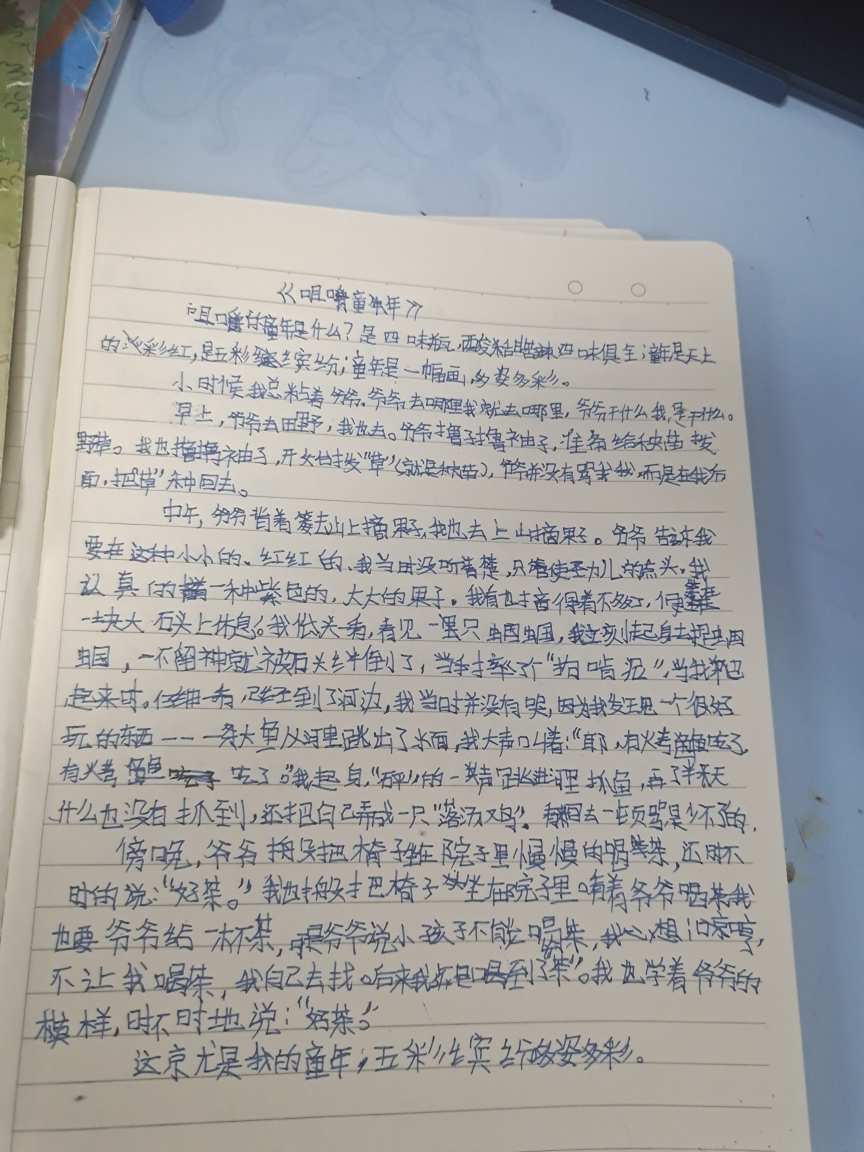 《咀嚼童年》
咀嚼的童年是什么?是四味瓶,酸甜 四味俱全;童年是天上
的 彩红,是五彩缤纷;童年是一幅画,多姿多彩。
小时候我总粘着爷爷,爷爷去哪里我就去哪里,爷爷干什么我 干什么。
早上,爷爷去田野,我也去。爷爷撸子撸袖子,准备给秧苗拔
野草。我也撸撸袖子,开始拔“草”(就是秧苗),爷爷并没有骂我,而是在我后
面,把“草”种回去。
中午,爷爷背着篓去山上摘果子,我也去上山摘果子。爷爷告诉我
要在这种小小的、红红的、我当时没听清楚,只管使劲儿的点头。我
认真的摘一种紫色的,大大的果子。我看也摘得差不多了,便坐在
一块大石头上休息。我低头一看,看见一只蝈蝈,我立刻起身去捉蝈
蝈,一不留神就被石头绊倒了,当 摔了个“狗啃泥”,当我爬
起来时。仔细一看,已经到了河边,我当时并没有哭,因为我发现一个很好
玩的东西——一条大鱼从河里跳出了水面,我大声叫着:“耶,有烤鱼吃了
有烤鱼 吃了。”我起身,“砰”的一声跳进河里抓鱼,再了半天
什么也没有抓到,还把自己弄成一只“落汤鸡”。 回去一顿骂是少不了的,
傍晚,爷爷搬把椅子坐在院子里慢慢的喝茶,还时不
时的说:“好茶。”我也搬把椅子坐在院子里 着爷爷喝茶我
也要爷爷给一杯茶,可是爷爷说小孩子不能喝茶,我心想:哼,
不让我喝茶,我自己去找。后来我还是喝到了“茶”。我也学着爷爷的
模样,时不时地说:“好茶。”
这就是我的童年,五彩缤纷多姿多彩。